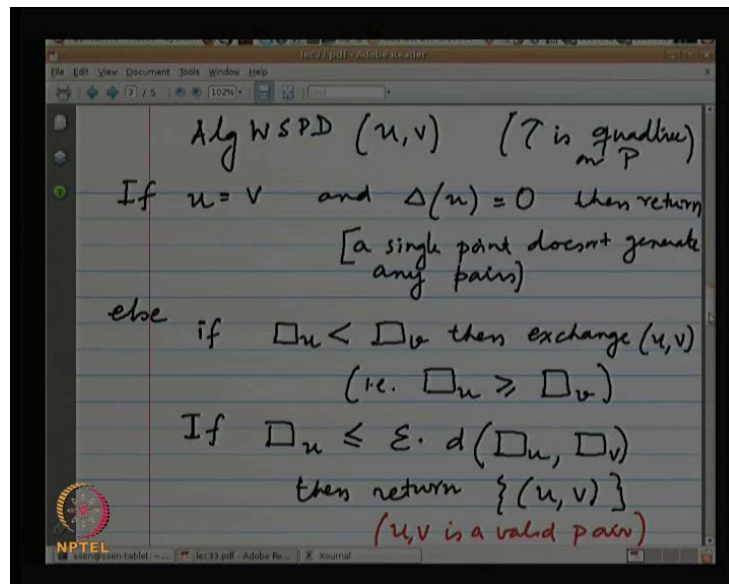 lec33.pdf - Adobe Reader
File Edit View Document Tools Window Help
3 / 5 102% Find
Alg WSPD (u,v) (T is quadtree
on P)
If u = v and Δ(u) = 0 then return
[a single point doesn't generate
any pairs)
else
if □u < □v then exchange (u,v)
(i.e. □u ≥ □v)
If □u ≤ ε. d(□u, □v)
then return {(u,v)}
(u,v is a valid pair)
NPTEL
lec33.pdf - Adobe Re... Xournal